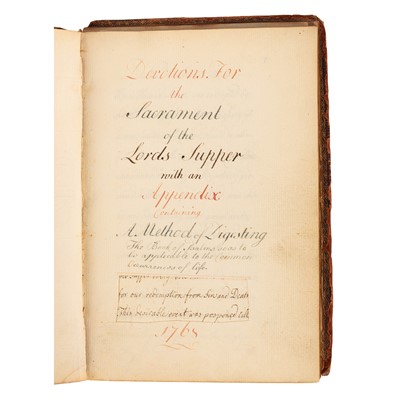 Devotions For
the
Sacrament
of the
Lords Supper
with an
Appendix
Containing
A Method of Digesting
The Book of Psalms so as to
be applicable to the Common
Occurences of life.
for our redemption from Sin and Death
This desirable event was postponed till
1765